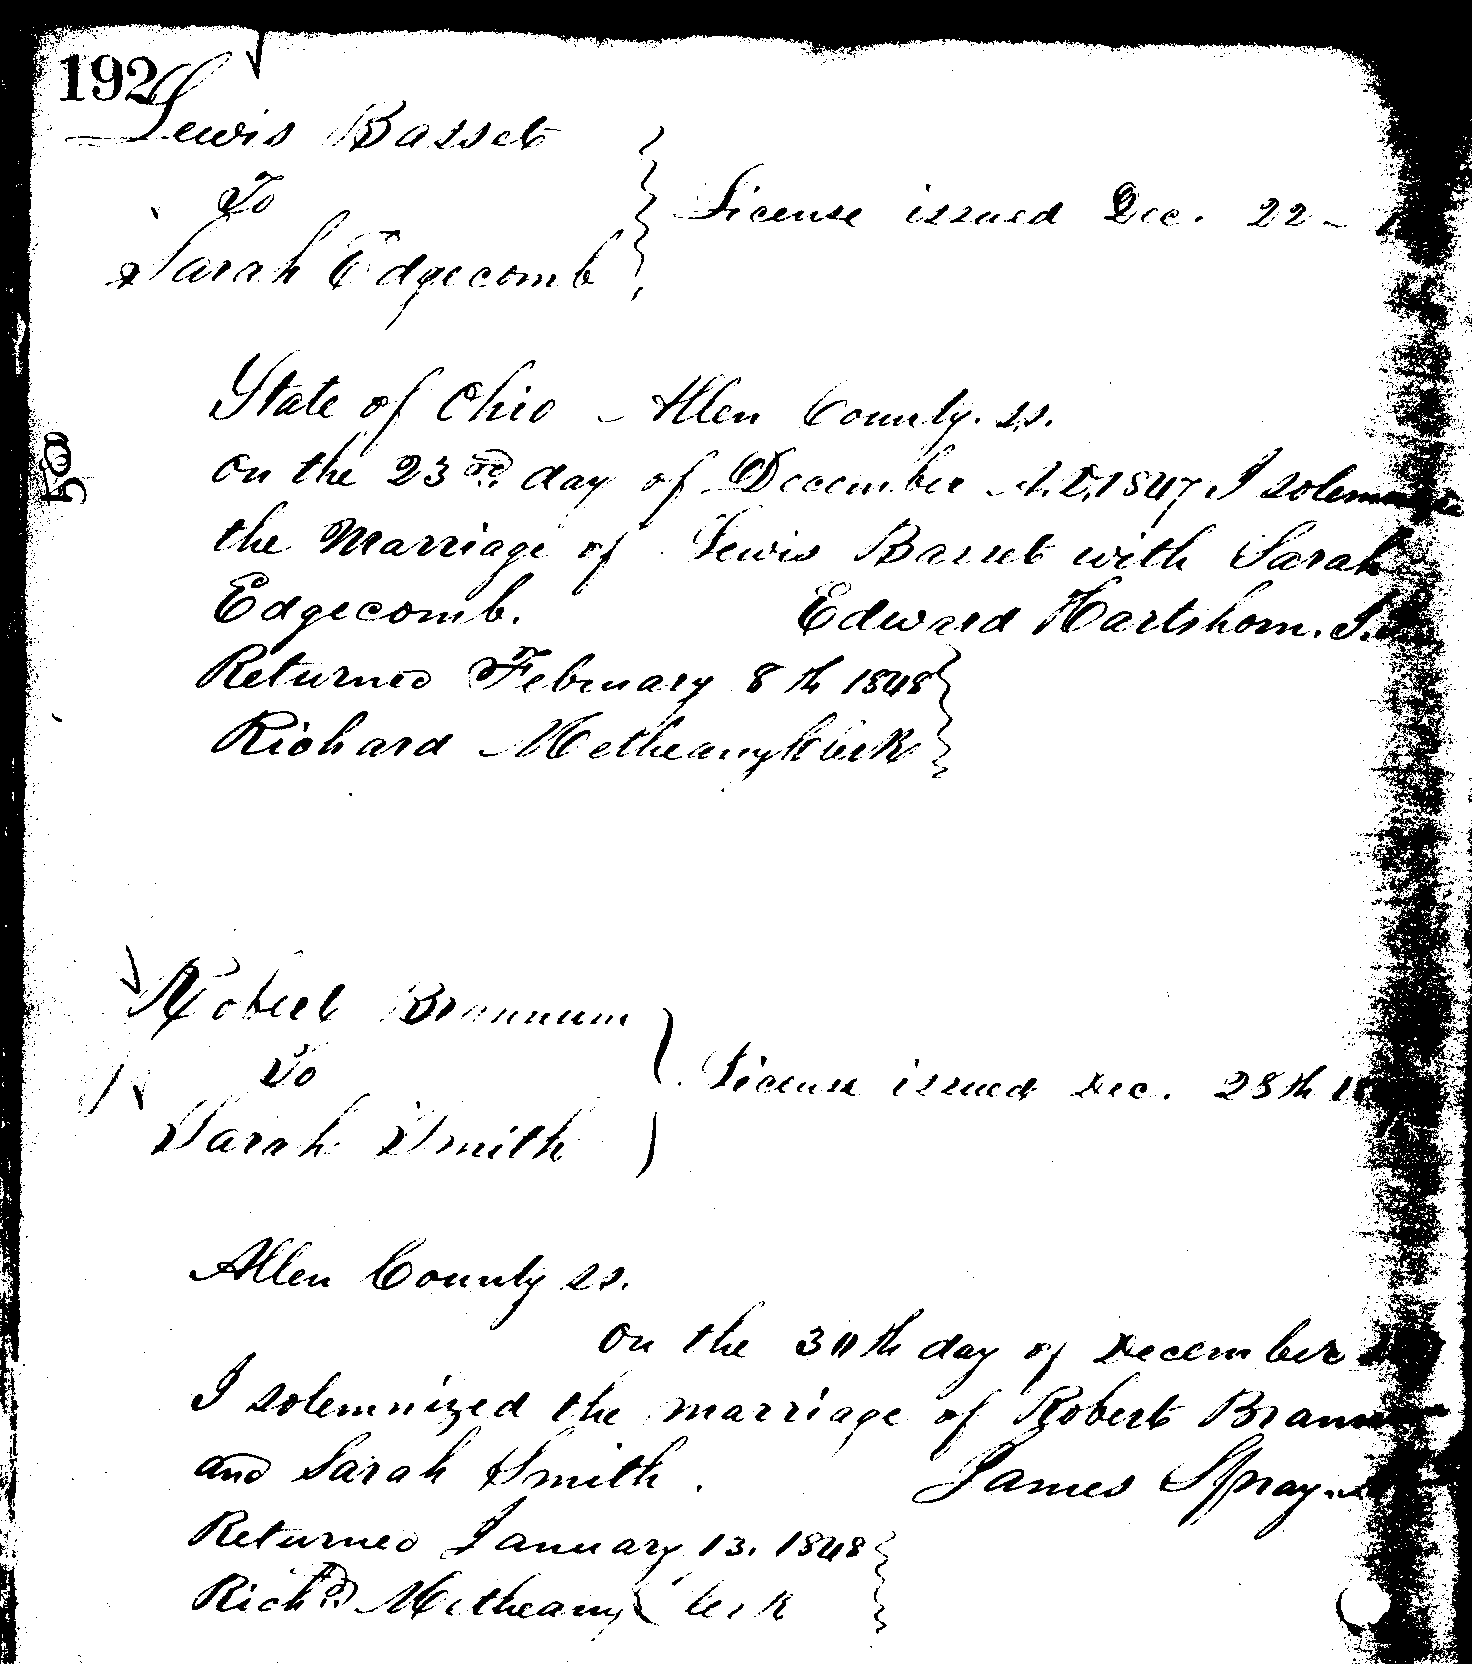 192
Lewis Basset
To
Sarah Edgecomb
License issued Dec. 22 -
State of Ohio Allen County. ss.
50
on the 23rd day of December A.D. 1847 I solemnize
the Marriage of Lewis Basset with Sarah
Edgecomb. Edward Hartshorn. J.
Returned February 8th 1848
Richard Metheany Clerk
Robert Brannum
To
Sarah Smith
License issued Dec. 28th 18
Allen County ss.
on the 30th day of December
I solemnized the marriage of Robert Brannum
and Sarah Smith. James Spray
Returned January 13. 1848
Richd Metheany Clerk